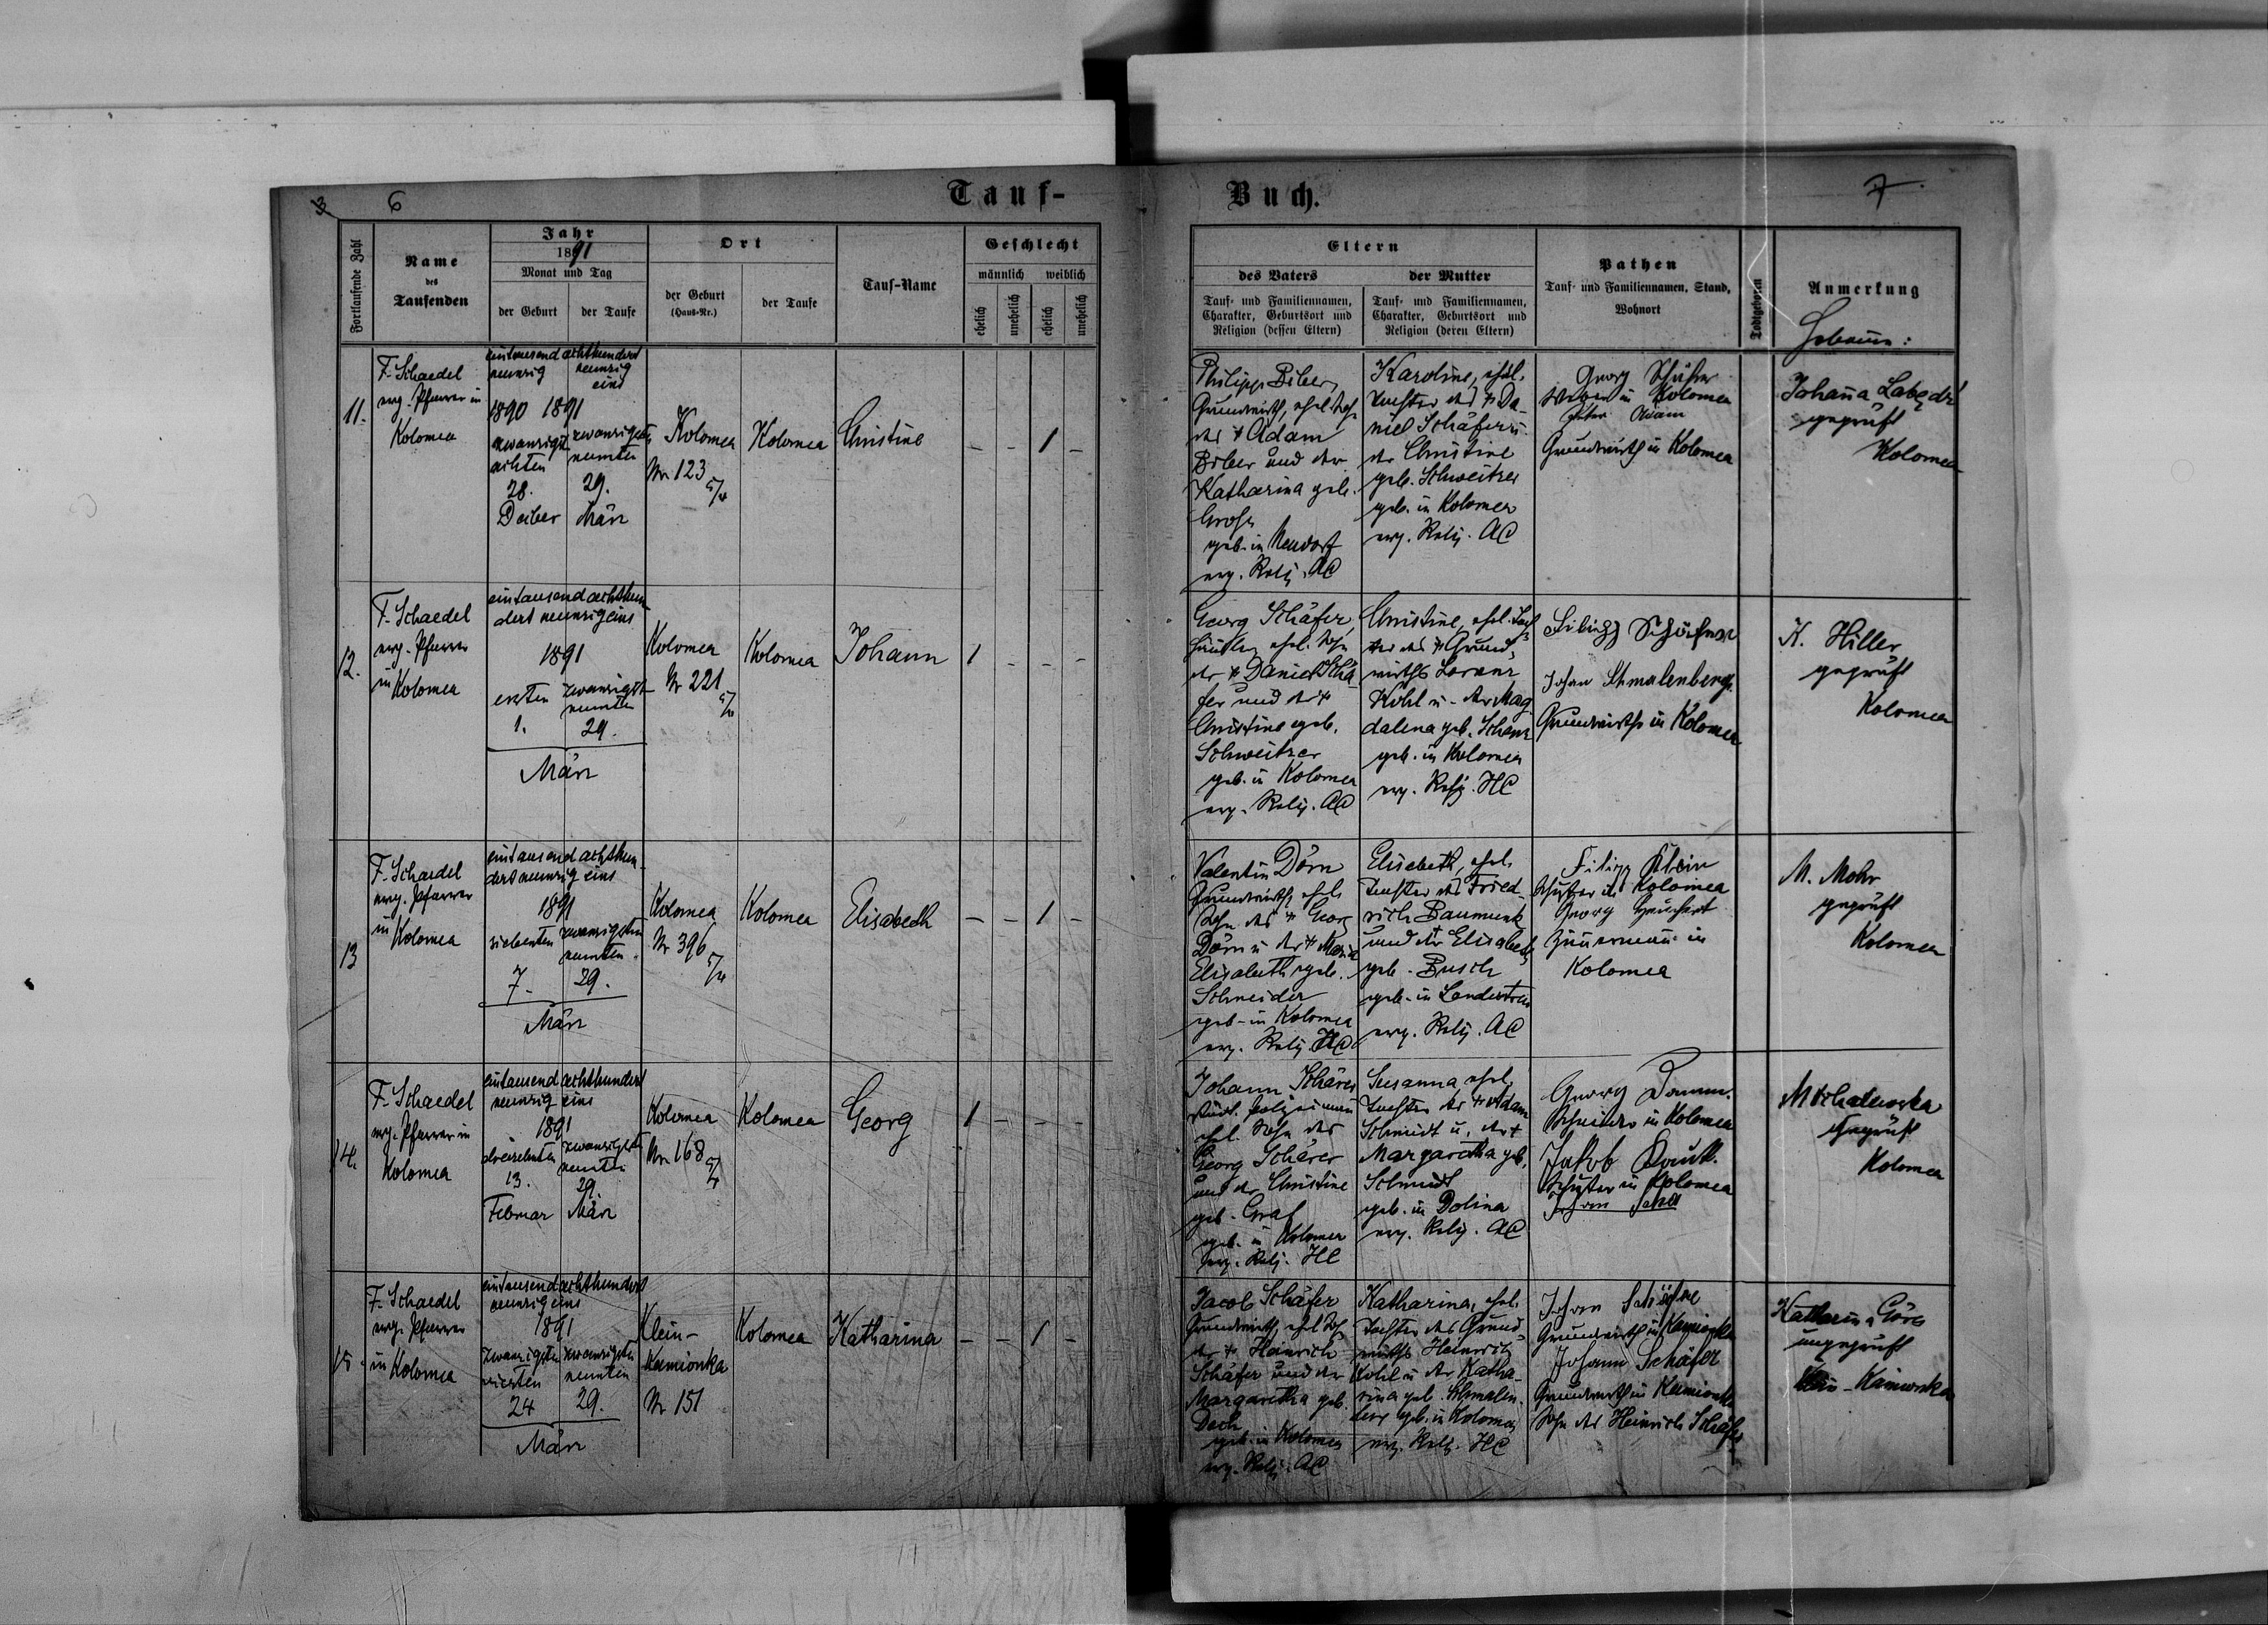 3 6
Tauf-
Buch.
7
Fortlaufende Zahl
Name
des
Taufenden
Jahr
1891
Monat und Tag
der Geburt
der Taufe
Ort
der Geburt
(Haus-Nr.)
der Taufe
Tauf-Name
Geschlecht
männlich weiblich
ehelich
unehelich
ehelich
unehelich
Eltern
des Vaters
Tauf- und Familiennamen,
Charakter, Geburtsort und
Religion (dessen Eltern)
der Mutter
Tauf- und Familiennamen,
Charakter, Geburtsort und
Religion (deren Eltern)
Pathen
Tauf- und Familiennamen, Stand,
Wohnort
Todtgeboren
Anmerkung
11.
F. Schaedel
evg. Pfarrer in
Kolomea
eintausend achthundert
neunzig
neunzig
eins
1890 1891
zwanzigst
achten
zwanzigsten
neunten
28.
29.
Dezber
März
Kolomea
Nr 123
Kolomea
Christine
- - 1 -
Philipp Biber
Grundwirth, ehel. Sohn
des + Adam
Biber und der
Katharina geb.
Gross
geb. in Neudorf
evg. Relig. AC
Karoline, ehel.
Tochter des + Da-
niel Schäfer u.
der Christine
geb. Schweitzer
geb. in Kolomea
evg. Relig. AC
Georg Schäfer
in Kolomea
Grundwirth in Kolomea
Johanna
geprüft
Kolomea
12.
F. Schaedel
evg. Pfarrer
in Kolomea
eintausend achthun-
dert neunzig eins
1891
ersten
zwanzigst
neunten
1.
29.
März
Kolomea
Nr 221
Kolomea
Johann
1 - - -
Georg Schäfer,
ehel. Sohn
des + Daniel Schä-
fer und der +
Christine geb.
Schweitzer
geb. in Kolomea
evg. Relig. AC
Christine, ehel. Toch-
ter des + Grund-
wirths Lorenz
Kohl u. der Mag-
dalena geb. Schanz
geb. in Kolomea
evg. Relig. HC
Filipp Schäfer
Johan Schmalenberg
Grundwirthe in Kolomea
K. Hiller
geprüft
Kolomea
13
F. Schaedel
evg. Pfarrer
in Kolomea
eintausend achthun-
dert neunzig eins
1891
siebenten
zwanzigsten
neunten
7.
29.
März
Kolomea
Nr 396
Kolomea
Elisabeth
- - 1 -
Valentin Dörn
Grundwirth, ehel.
Sohn des + Georg
Dörn u. der + Maria
Elisabeth geb.
Schneider
geb. in Kolomea
evg. Relig. HC
Elisabeth, ehel.
Tochter des Fried-
rich Baumunk
und der Elisabeth
geb. Busch
geb. in Landestreu
evg. Relig. AC
Filipp Klein
in Kolomea
Georg
Zimmermann in
Kolomea
M. Mohr
geprüft
Kolomea
14.
F. Schaedel
evg. Pfarrer in
Kolomea
eintausend achthundert
neunzig eins
1891
dreizehnten
zwanzigsten
neunten
13.
29.
Februar
März
Kolomea
Nr 168
Kolomea
Georg
1 - - -
Johann Schärer
ehel. Sohn des
Georg Schärer
und der Christine
geb. Graf
geb. in Kolomea
evg. Relig. HC
Susanna, ehel.
Tochter des + Adam
Schmidt u. der +
Margaretha geb.
Schmidt
geb. in Dolina
evg. Relig. AC
Georg
Schneider in Kolomea
Jakob
in Kolomea
geprüft
Kolomea
15.
F. Schaedel
evg. Pfarrer
in Kolomea
eintausend achthundert
neunzig eins
1891
zwanzigsten
vierten
zwanzigsten
neunten
24
29.
März
Klein-
Kamionka
Nr 151
Kolomea
Katharina
- - 1 -
Jacob Schäfer
Grundwirth, ehel. Sohn
des + Heinrich
Schäfer und der
Margaretha geb.
geb. in Kolomea
evg. Relig. AC
Katharina, ehel.
Tochter des Grund-
wirths Heinrich
Kohl u. der Katha-
rina geb. Schmalen-
berg geb. in Kolomea
evg. Relig. HC
Johan Schäfer
Grundwirth in Kamionka
Johann Schäfer
Grundwirth in Kamionka
Sohn des Heinrich Schäfer
Katharina
ungeprüft
Klein-Kamionka